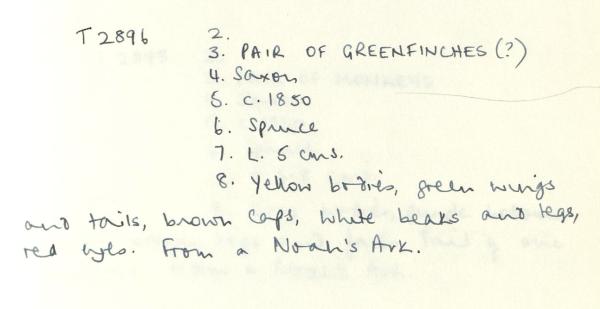 T 2896 2.
3. PAIR OF GREENFINCHES (?)
4. Saxon
5. c. 1850
6. Spruce
7. L. 5 cms.
8. Yellow bodies, green wings
and tails, brown caps, white beaks and legs,
red eyes. From a Noah's Ark.